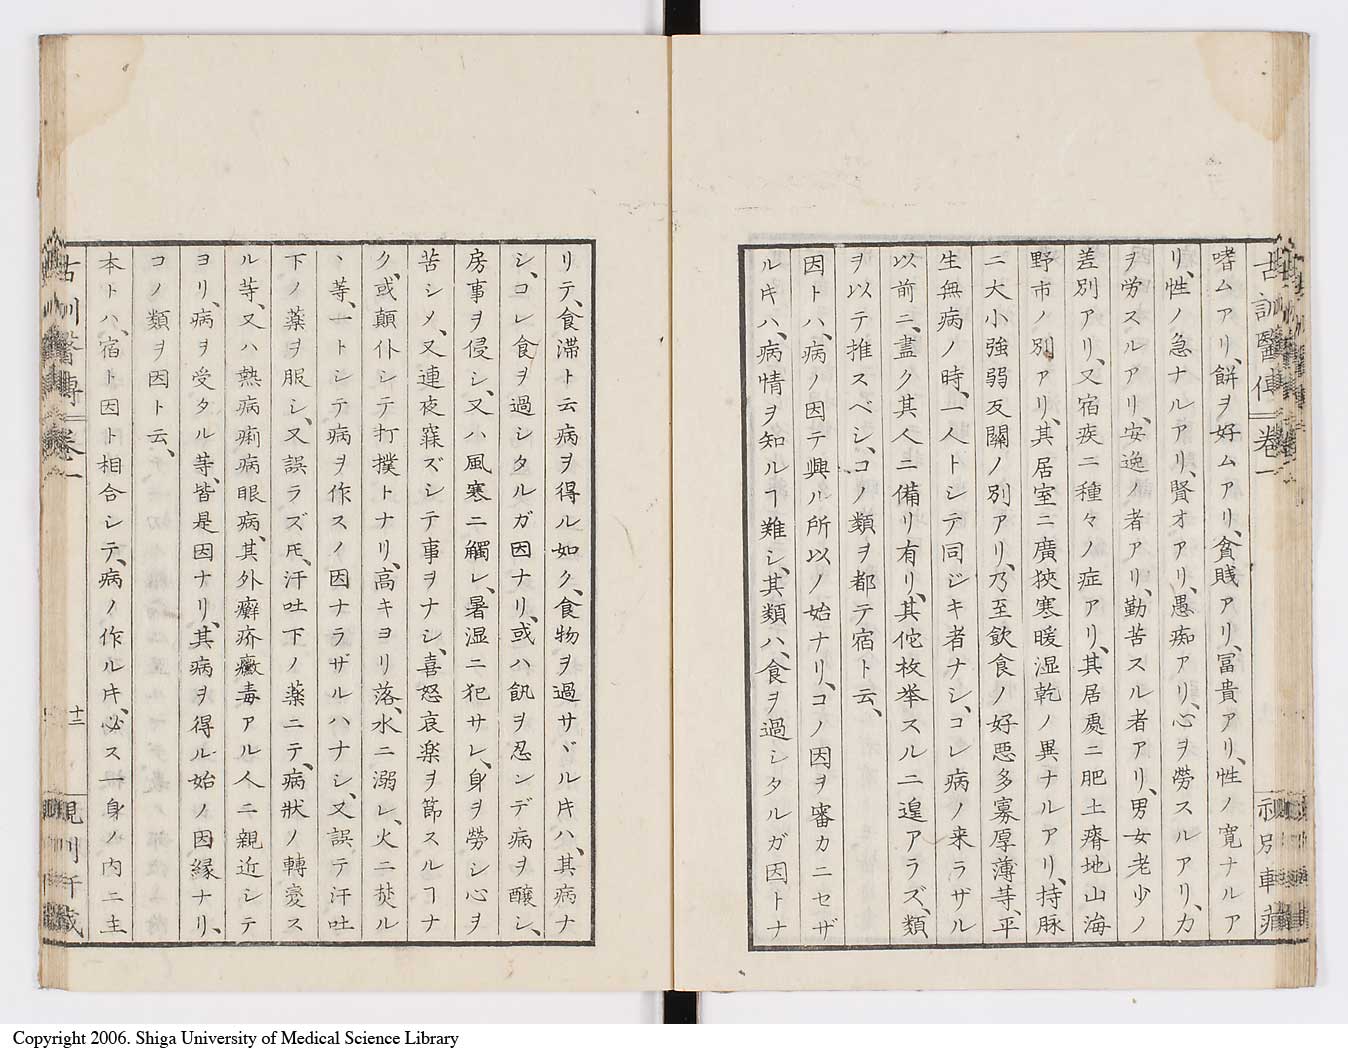 古訓醫傳 卷一
嗜ムアリ、餅ヲ好ムアリ、貧賎アリ、冨貴アリ、性ノ寛ナルア
リ、性ノ急ナルアリ、賢才アリ、愚痴アリ、心ヲ勞スルアリ、力
ヲ労スルアリ、安逸ノ者アリ、勤苦スル者アリ、男女老少ノ
差別アリ、又宿疾ニ種々ノ症アリ、其居處ニ肥土瘠地山海
野市ノ別アリ、其居室ニ廣狹寒暖湿乾ノ異ナルアリ、持脉
ニ大小強弱 ノ別アリ、乃至飲食ノ好悪多寡厚薄等、平
生無病ノ時、一人トシテ同ジキ者ナシ、コレ病ノ来ラザル
以前ニ、盡ク其人ニ備リ有リ、其佗枚挙スルニ遑アラズ、類
ヲ以テ推スベシ、コノ類ヲ都テ宿ト云、
因トハ、病ノ因テ興ル所以ノ始ナリ、コノ因ヲ審カニセザ
ルㇳキハ、病情ヲ知ルヿ難シ、其類ハ、食ヲ過シタルガ因トナ
リテ、食滞ト云病ヲ得ル如ク、食物ヲ過サヾル𪜈ハ、其病ナ
シ、コレ食ヲ過シタルガ因ナリ、或ハ飢ヲ忍ンデ病ヲ釀シ、
房事ヲ侵シ、又ハ風寒ニ觸レ、暑湿ニ犯サレ、身ヲ勞シ心ヲ
苦シメ、又連夜寐ズシテ事ヲナシ、喜怒哀楽ヲ節スルヿナ
ク、或顛仆シテ打撲トナリ、高キヨリ落、水ニ溺レ、火ニ焚ル
ヽ等、一トシテ病ヲ作スノ因ナラザルハナシ、又誤テ汗吐
下ノ薬ヲ服シ、又誤ラズ𪜈、汗吐下ノ薬ニテ、病狀ノ轉変ス
ル等、又ハ熱病痢病眼病、其外癬疥黴毒アル人ニ親近シテ
ヨリ、病ヲ受タル等、皆是因ナリ、其病ヲ得ル始ノ因縁ナリ、
コノ類ヲ因ト云、
本トハ、宿ト因ト相合シテ、病ノ作ル𪜈、必ス一身ノ内ニ主
古訓醫傳 卷一
十二
Copyright 2006. Shiga University of Medical Science Library